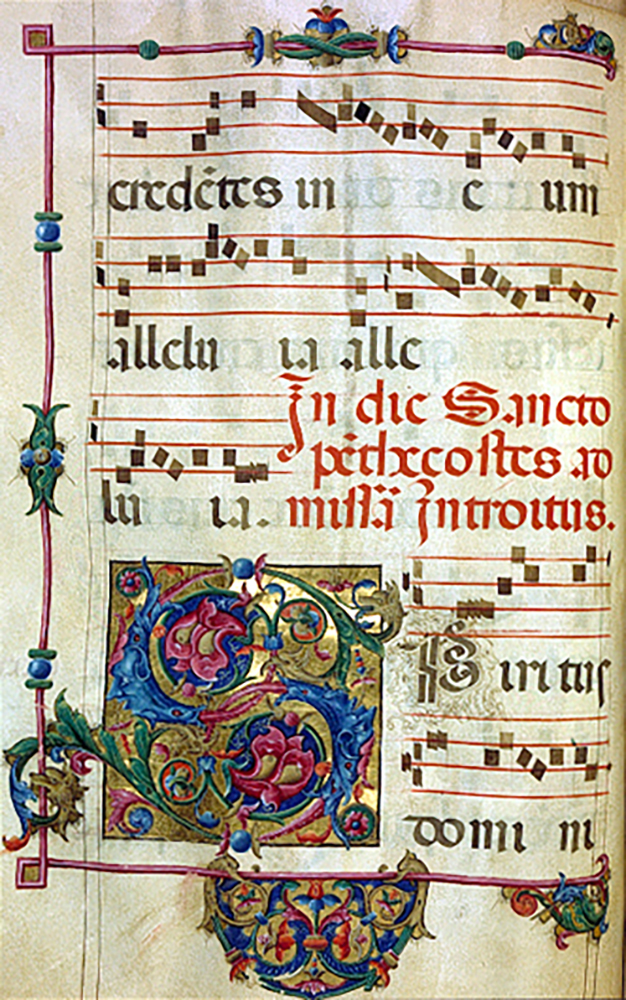 credētes in e um
allelu ia alle
In die Sancto
pēthecostes ad
lu ia. missā Introitus.
SPiritus
domi ni